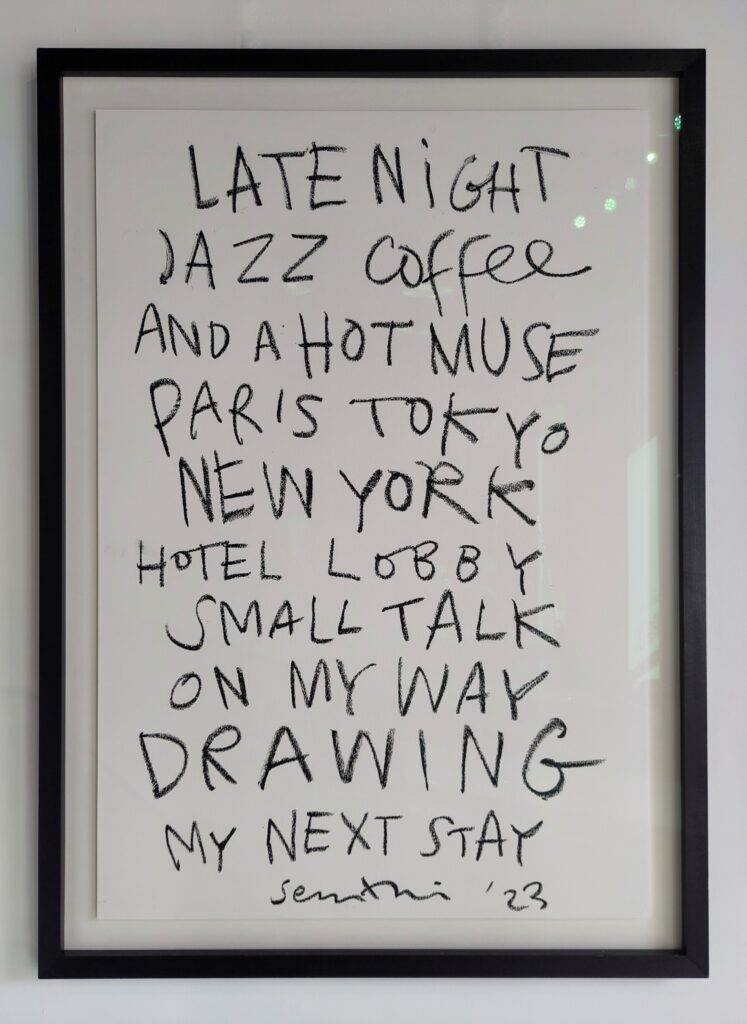 LATE NiGHT
JAZZ coffee
AND A HOT MUSE
PARIS TOKYO
NEW YORK
HOTEL LOBBY
SMALL TALK
ON MY WAY
DRAWING
MY NEXT STAY
'23